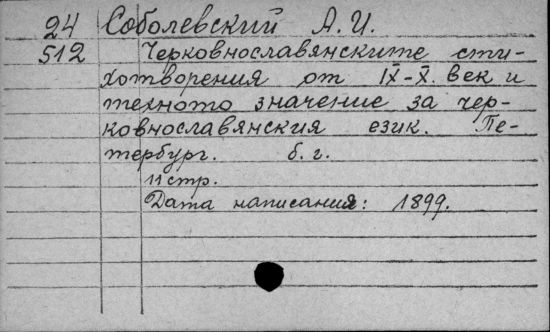 24 Соболевский А.И.
512 Черковнославянските сти-
хотворения от IX-X. век и
техното значение за чер-
ковнославянския език. Пе-
тербург. б.г.
11 стр.
Дата написания: 1899.